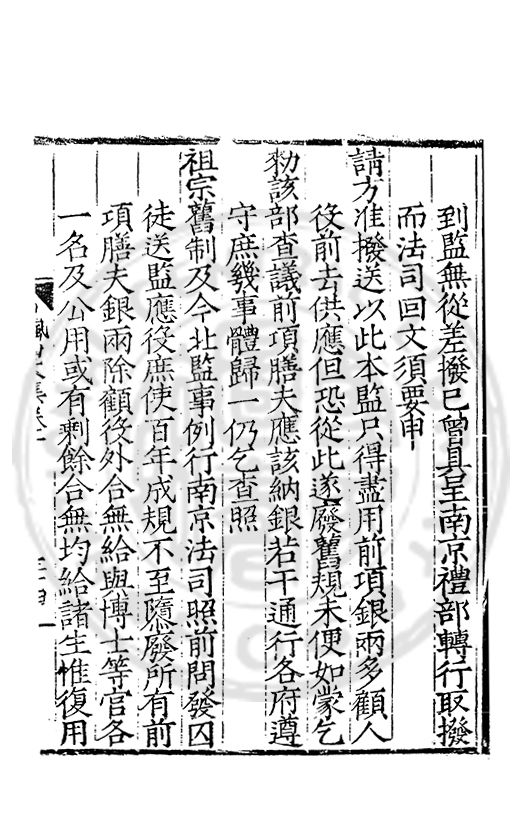 到監無從差撥已曾具呈南京禮部轉行取撥
而法司回文須要申
請方准撥送以此本監只得盡用前項銀兩多顧人
役前去供應但恐從此遂廢舊規未便如蒙乞
勑該部查議前項膳夫應該納銀若干通行各府遵
守庶幾事體歸一仍乞查照
祖宗舊制及今北監事例行南京法司照前問發囚
徒送監應役庶使百年成規不至隳廢所有前
項膳夫銀兩除顧役外合無給與博士等官各
一名及公用或有剩餘合無均給諸生惟復用